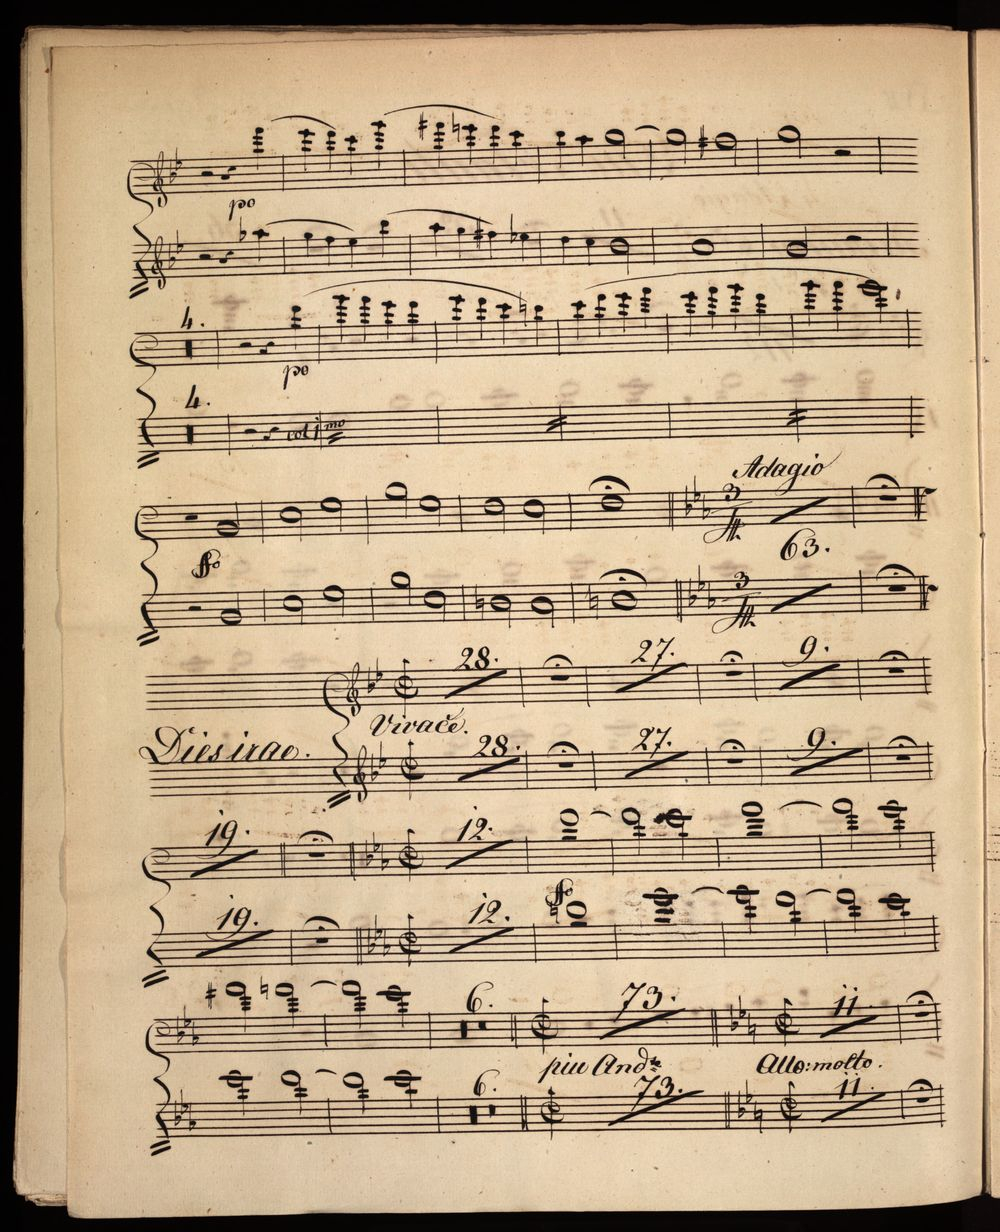 po
4.
po
4.
col imo
Adagio
3
fo
63.
3
28. 27. 9.
Vivace.
Dies irae.
28. 27. 9.
19. 12.
fo
19. 12.
6. 73. 11.
piu Andte Allo: molto.
6. 73. 11.